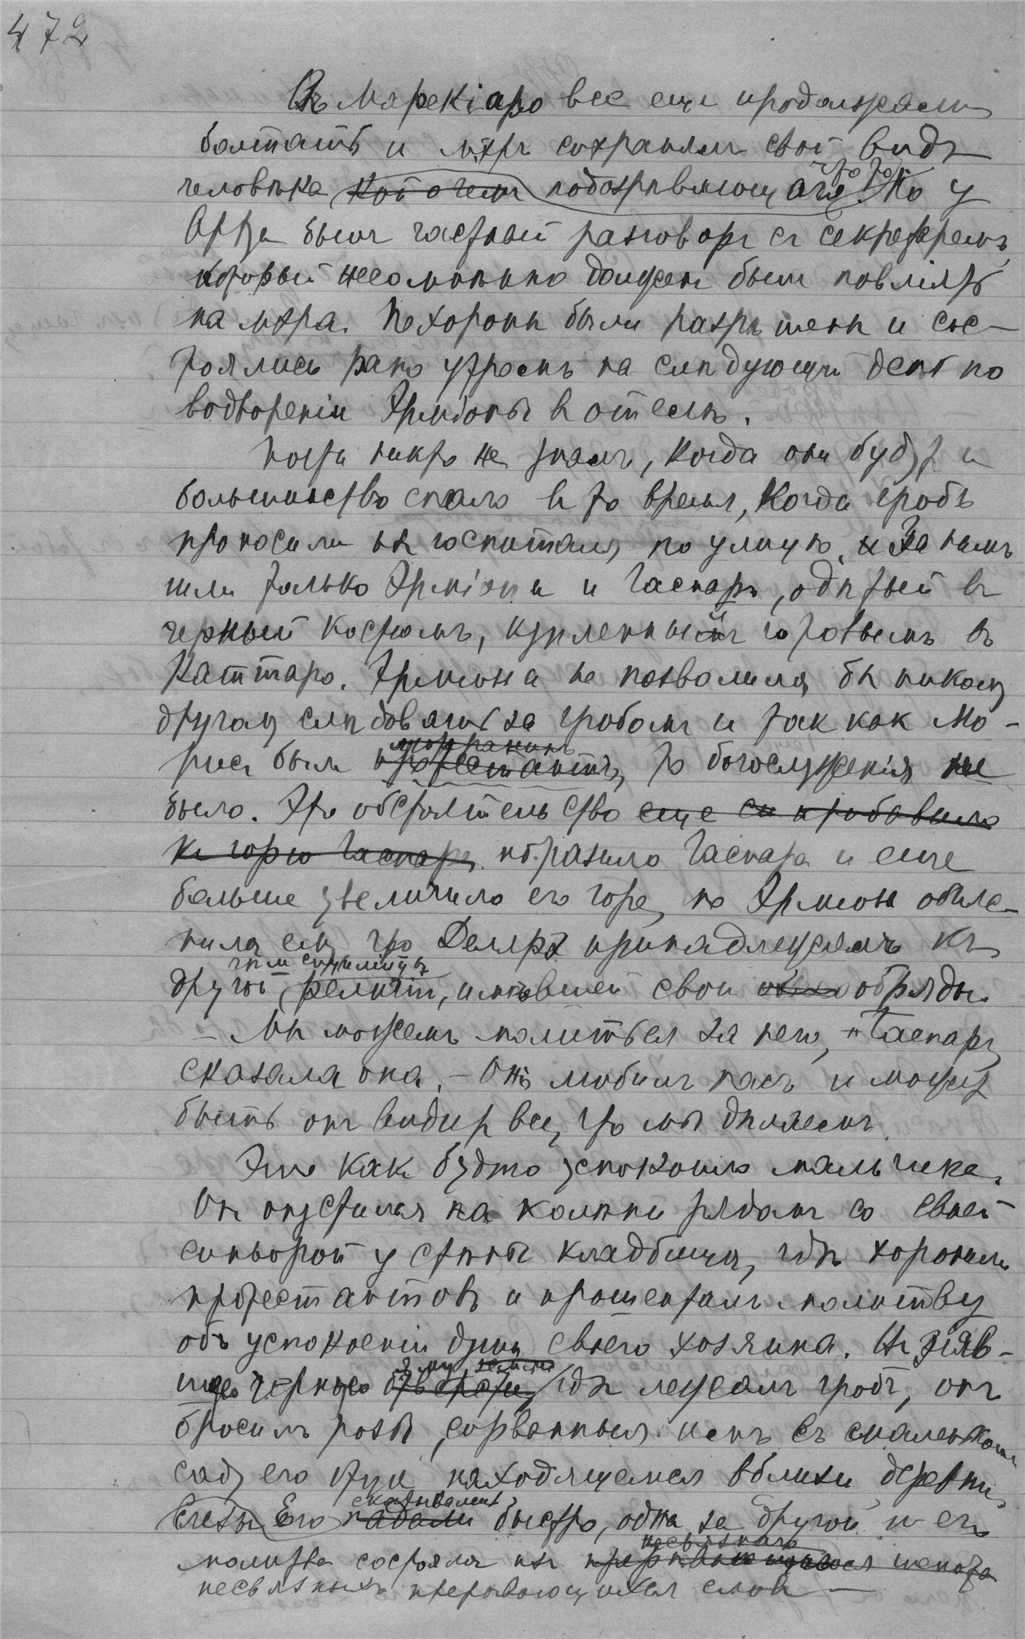 472
Въ Марекіаро все еще продолжали
болтать и мэръ сохранялъ свой видъ
человѣка кой о чемъ подозрѣвающаго что то. Но у
Арта былъ частный разговоръ съ секретаремъ,
который несомнѣнно долженъ былъ повліять
на мэра. Похороны были разрѣшены и сос-
тоялись рано утромъ на слѣдующій день по
водвореніи Эрміоны въ отель.
Почти никто не зналъ, когда они будутъ и
большинство спало въ то время, когда гробъ
проносили изъ госпиталя по улицѣ. и За нимъ
шли только Эрміона и Гаспаръ, одѣтый въ
черный костюмъ, купленный готовымъ въ
Каттаро. Эрміона не позволила бы никому
другому слѣдовать за гробомъ и такъ какъ Мо-
рисъ былъ протестантъ, лютеранинъ то богослуженія не
было. Это обстоятельство еще прибавило
къ горю Гаспара поразило Гаспара и еще
больше увеличило его горе, но Эрміона объяс-
нила ему, что Деларэ принадлежалъ къ
другой, чѣмъ сицилійцы религіи, имѣвшей свои обряды.
— Мы можемъ молиться за него, Гаспаръ,
сказала она. — Онъ любилъ насъ и можетъ
быть онъ видитъ все, что мы дѣлаемъ.
Это какъ будто успокоило мальчика.
Онъ опустился на колѣни рядомъ со своей
синьорой у стѣны кладбища, гдѣ хоронили
протестантовъ и прошепталъ молитву
объ успокоеніи души своего хозяина. Въ зіяв-
шую черную отверстіе яму земли гдѣ лежалъ гробъ, онъ
бросилъ розы, сорванныя имъ въ маленькомъ
саду его отца находящемся вблизи деревни.
Слезы Его падали скатывались быстро, одна за другой и его
молитва состояла изъ несвязнаго шепота
несвязныхъ прерывающихся словъ —